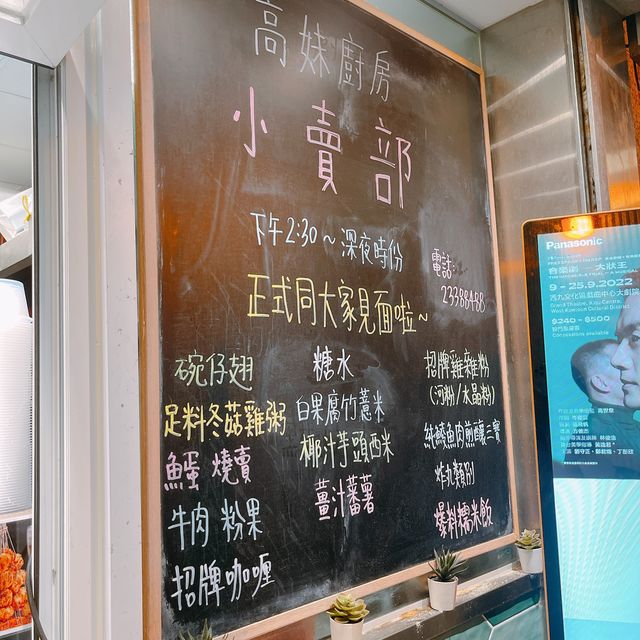 高妹廚房
小賣部
下午2:30~深夜時份
電話:
23388488
正式同大家見面啦~
碗仔翅
足料冬菇雞粥
魚蛋 燒賣
牛肉 粉果
招牌咖喱
糖水
白果腐竹薏米
椰汁芋頭西米
薑汁蕃薯
招牌雞雜粉
(河粉/水晶粉)
純鯪魚肉煎釀三寶
炸丸類
爆料糯米飯
Panasonic
音樂劇 大狀王
9 - 25.9.2022
西九文化區戲曲中心大劇院
$240 - $500